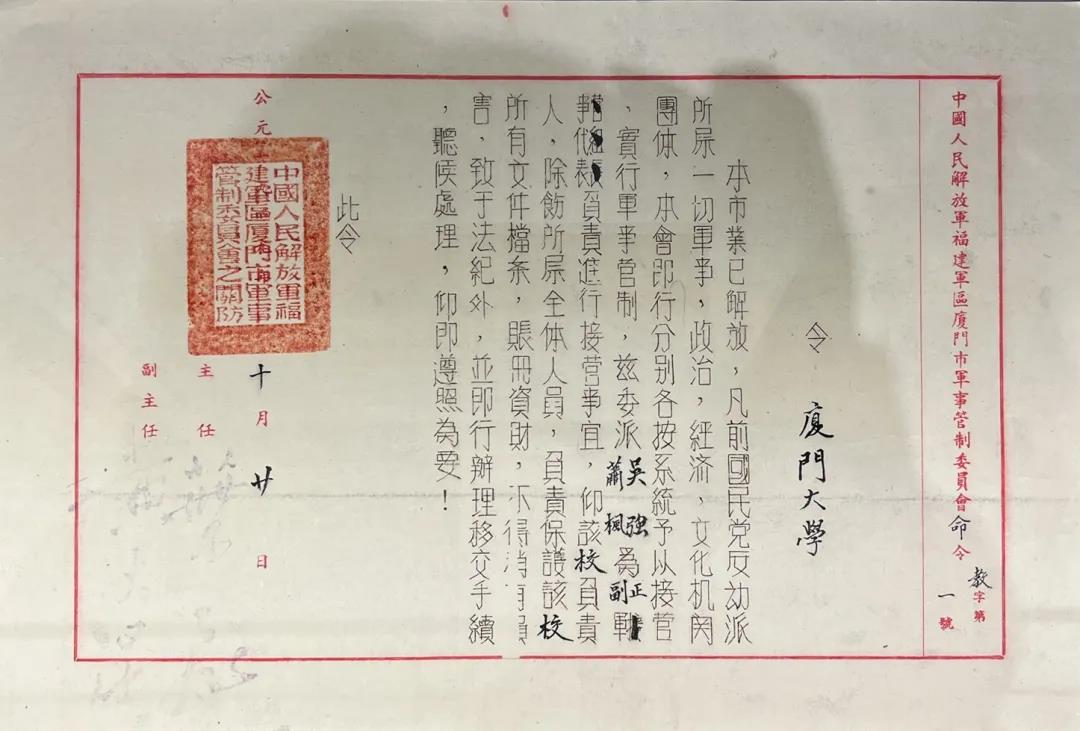 中國人民解放軍福建軍區廈門市軍事管制委員會命令
教字第一號
令 廈門大学
本市業已解放，凡前國民党反动派
所屌一切軍事，政治，經济，文化机関
團体，本會即行分别各按系統予以接管
、實行軍事管制，兹委派吳強蕭楓為正副
事代表負責進行接管事宜，仰該校負責
人，除飭所屌全体人員，負責保護該校
所有文件檔案，賬冊資財，不得稍有損
害，致于法紀外，並即行辦理移交手續
，聽侯處理，仰即遵照為要！
此令
公元
十月廿日
中國人民解放軍福
建軍區廈門市軍事
管制委員會之關防
主任
副主任